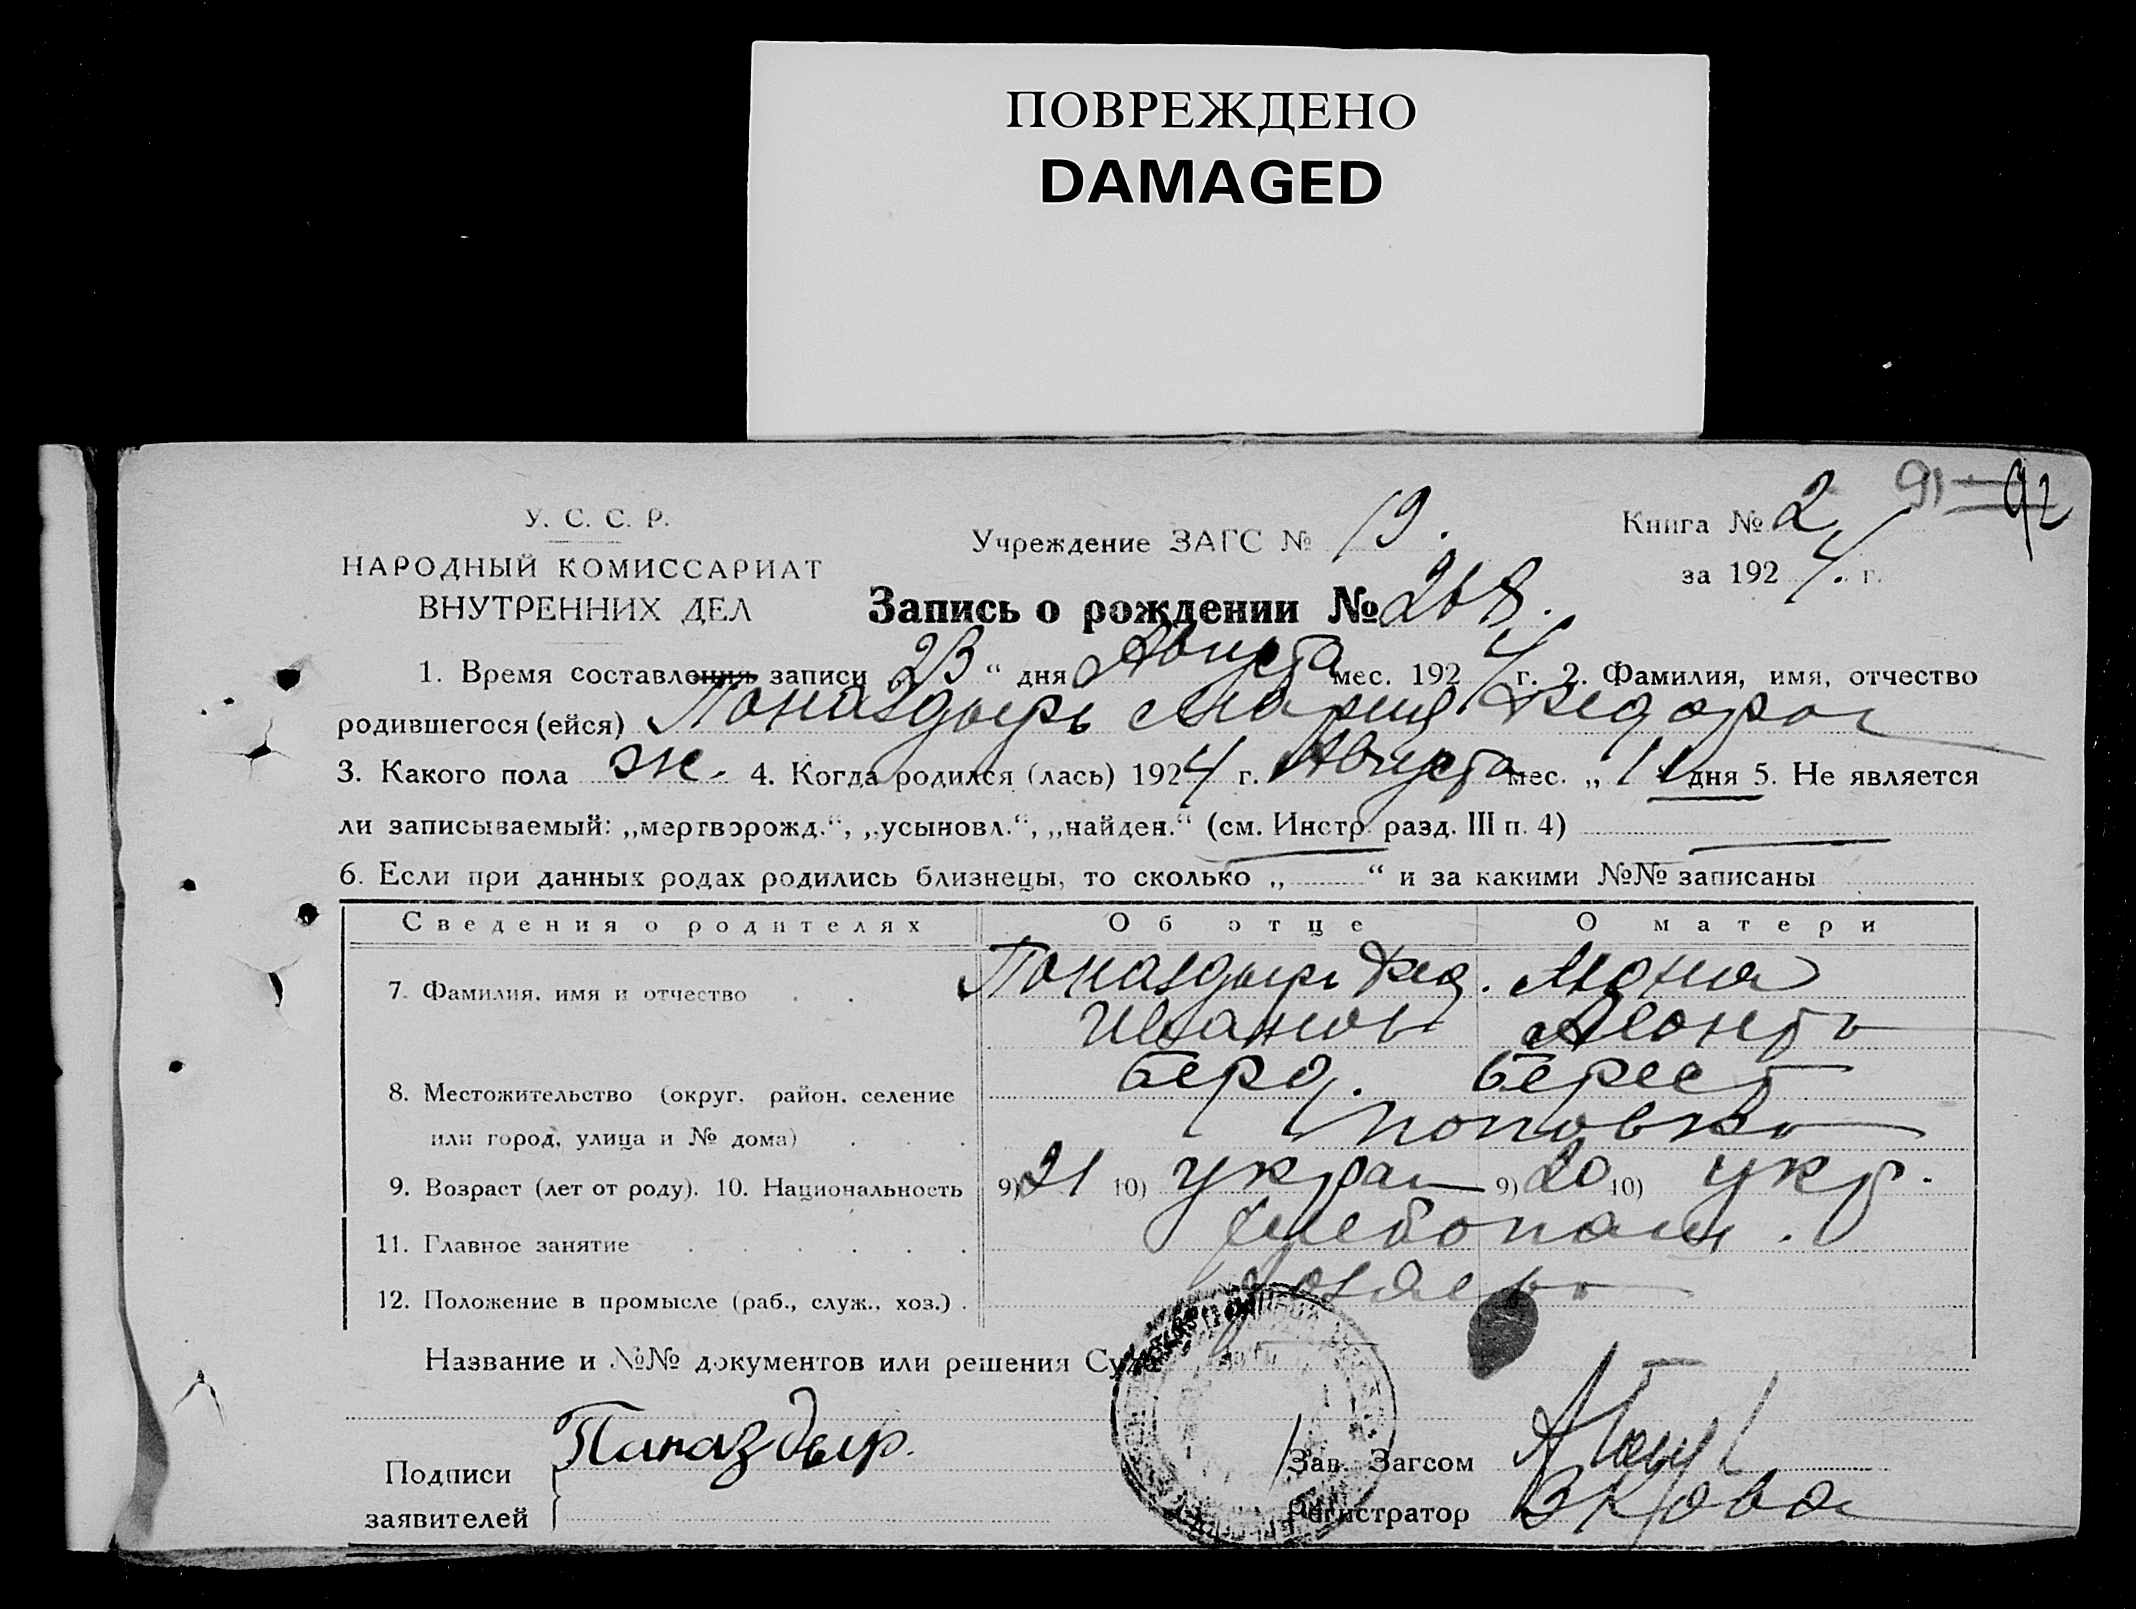 ПОВРЕЖДЕНО
DAMAGED
91 92
У. С. С. Р.
НАРОДНЫЙ КОМИССАРИАТ
ВНУТРЕННИХ ДЕЛ
Учреждение ЗАГС № 19.
Книга № 2
за 1924. г.
Запись о рождении № 268.
1. Время составления записи „23“ дня Августа мес. 1924 г. 2. Фамилия, имя, отчество
родившегося (ейся) Поназдырь Мария Федоров
3. Какого пола ж. 4. Когда родился (лась) 1924 г. Августа мес. „11 дня 5. Не является
ли записываемый: „мертворожд.“, „усыновл.“, „найден.“ (см. Инстр. разд. III п. 4)
6. Если при данных родах родились близнецы, то сколько „ “ и за какими №№ записаны
Сведения о родителях Об отце О матери
7. Фамилия, имя и отчество Поназдырь Фед.
Иванов
8. Местожительство (округ, район, селение Берд. Берест
или город, улица и № дома) Поповка
9. Возраст (лет от роду). 10. Национальность 9) 21 10) украи 9) 20 10) укр.
11. Главное занятие хлебопаш.
12. Положение в промысле (раб., служ., хоз.) хозяева
Название и №№ документов или решения Суда
Подписи Паназдыр.
заявителей
Зав. Загсом
Регистратор